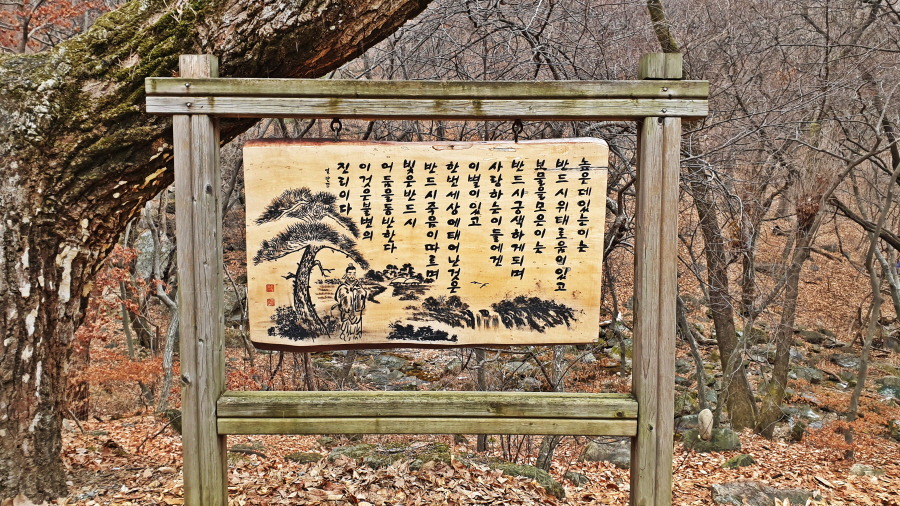 높은데 있는이는
반드시 위태로움이 있고
보물을 모은이는
반드시 궁색하게 되며
사랑하는 이들에겐
이별이 있고
한번 세상에 태어난 것은
반드시 죽음이 따르며
빛은 반드시
어둠을 동반한다
이것은 불변의
진리이다